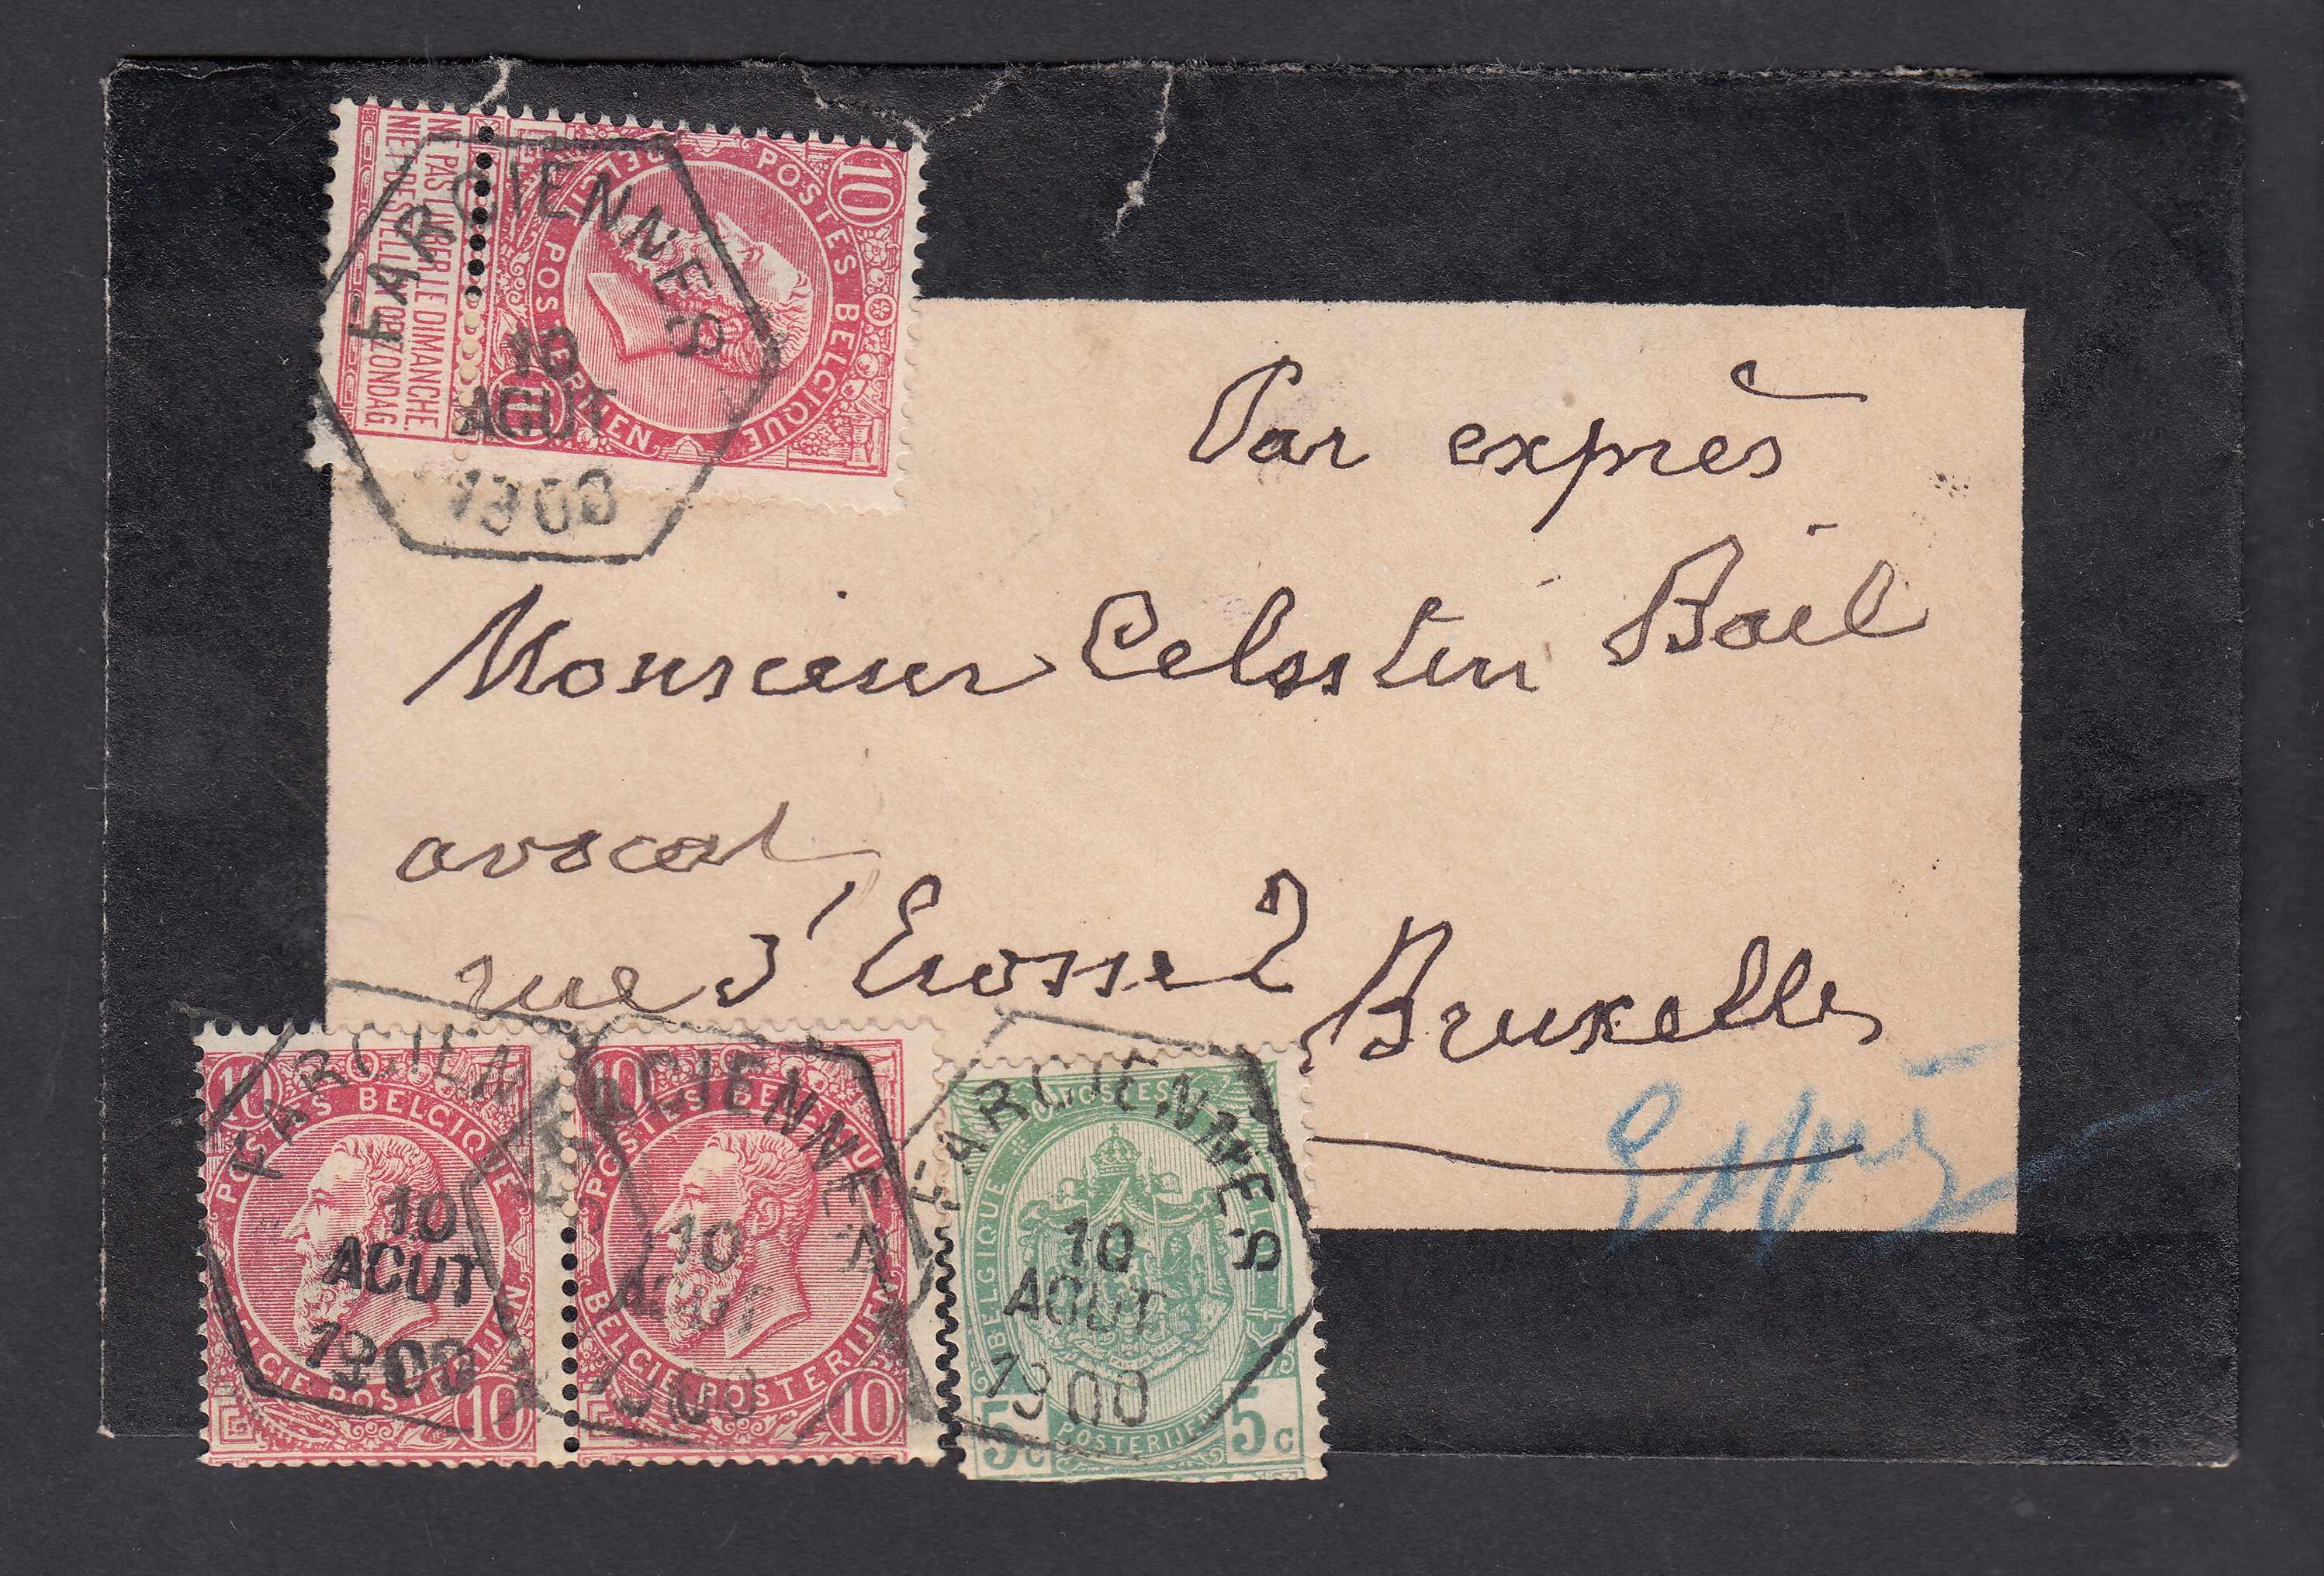 10 POSTES BELGIQUE
BELGIE POSTERIJEN 10
NE PAS LIVRER LE DIMANCHE.
NIET BESTELLEN OP ZONDAG.
FARCIENNES
10
AOUT
1900
Par exprès
Monsieur Celestin Bail
avocat
rue d'
Bruxelles
Exprès
10 POSTES BELGIQUE
BELGIE POSTERIJEN 10
FARCIENNES
10
AOUT
1900
10 POSTES BELGIQUE
BELGIE POSTERIJEN 10
FARCIENNES
10
AOUT
1900
POSTES
BELGIQUE
BELGIE
5c POSTERIJEN 5c
FARCIENNES
10
AOUT
1900